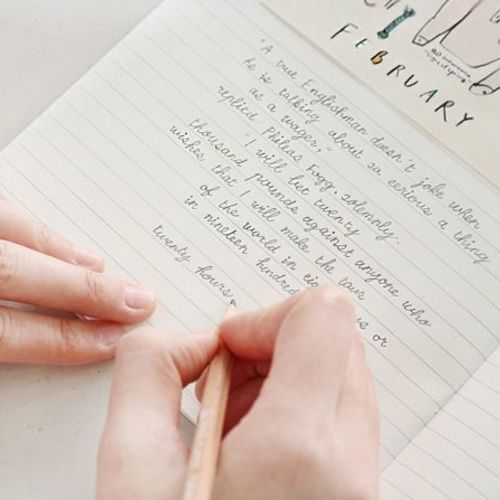 FEBRUARY
"A true Englishman doesn't joke when
he is talking about so serious a thing
as a wager,"
replied Philias Fogg, solemnly.
"I will bet twenty
thousand pounds against anyone who
wishes that I will make the tour
of the world in
in nineteen hundred or
twenty hours